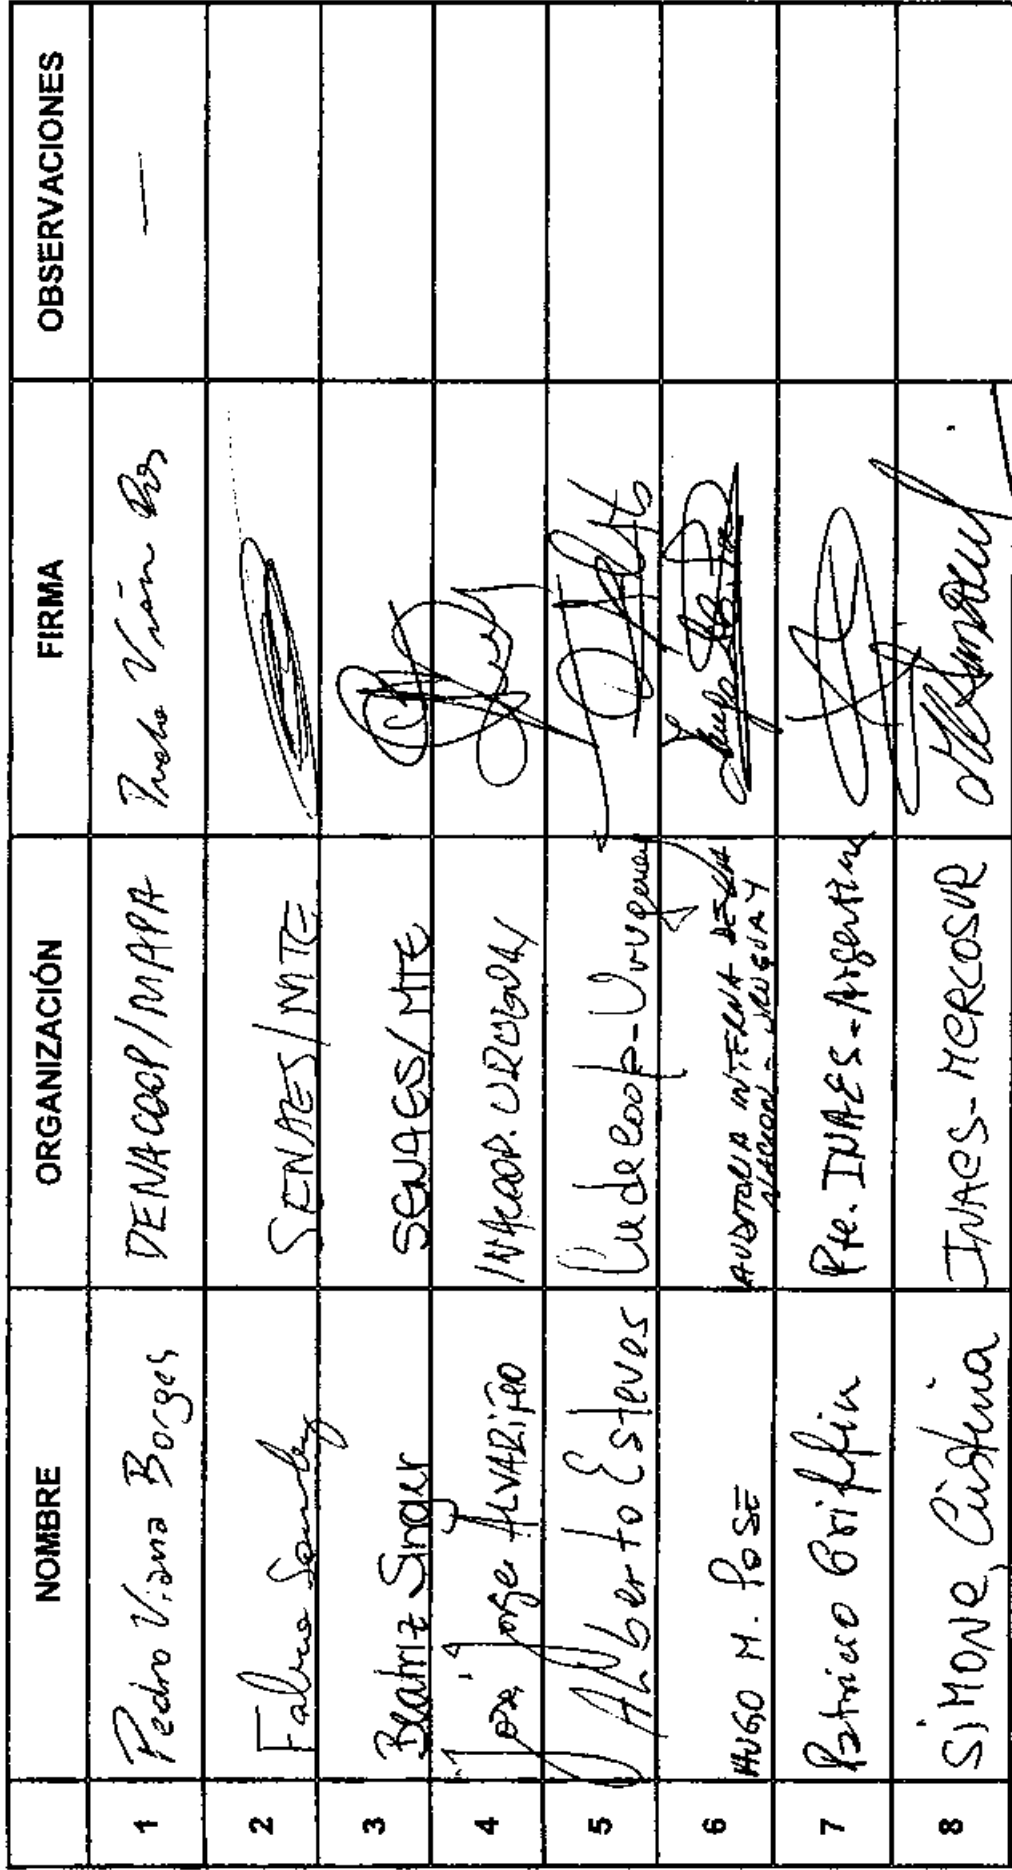 NOMBRE ORGANIZACIÓN FIRMA OBSERVACIONES
1 Pedro Viana Borges DENACOOP/MAPA —
2 SENAES/MTE
3 Beatriz Singer SENAES/MTE
4 José Jorge ALVARIÑO INACOOP. URUGUAY
5 Alberto Esteves Cudecoop-Uruguay
6 HUGO M. POSE AUDITORIA INTERNA DE LA
NACION - URUGUAY
7 Patricio Griffin Pte. INAES-Argentina
8 SiMONE, Cristina INAES-MERCOSUR